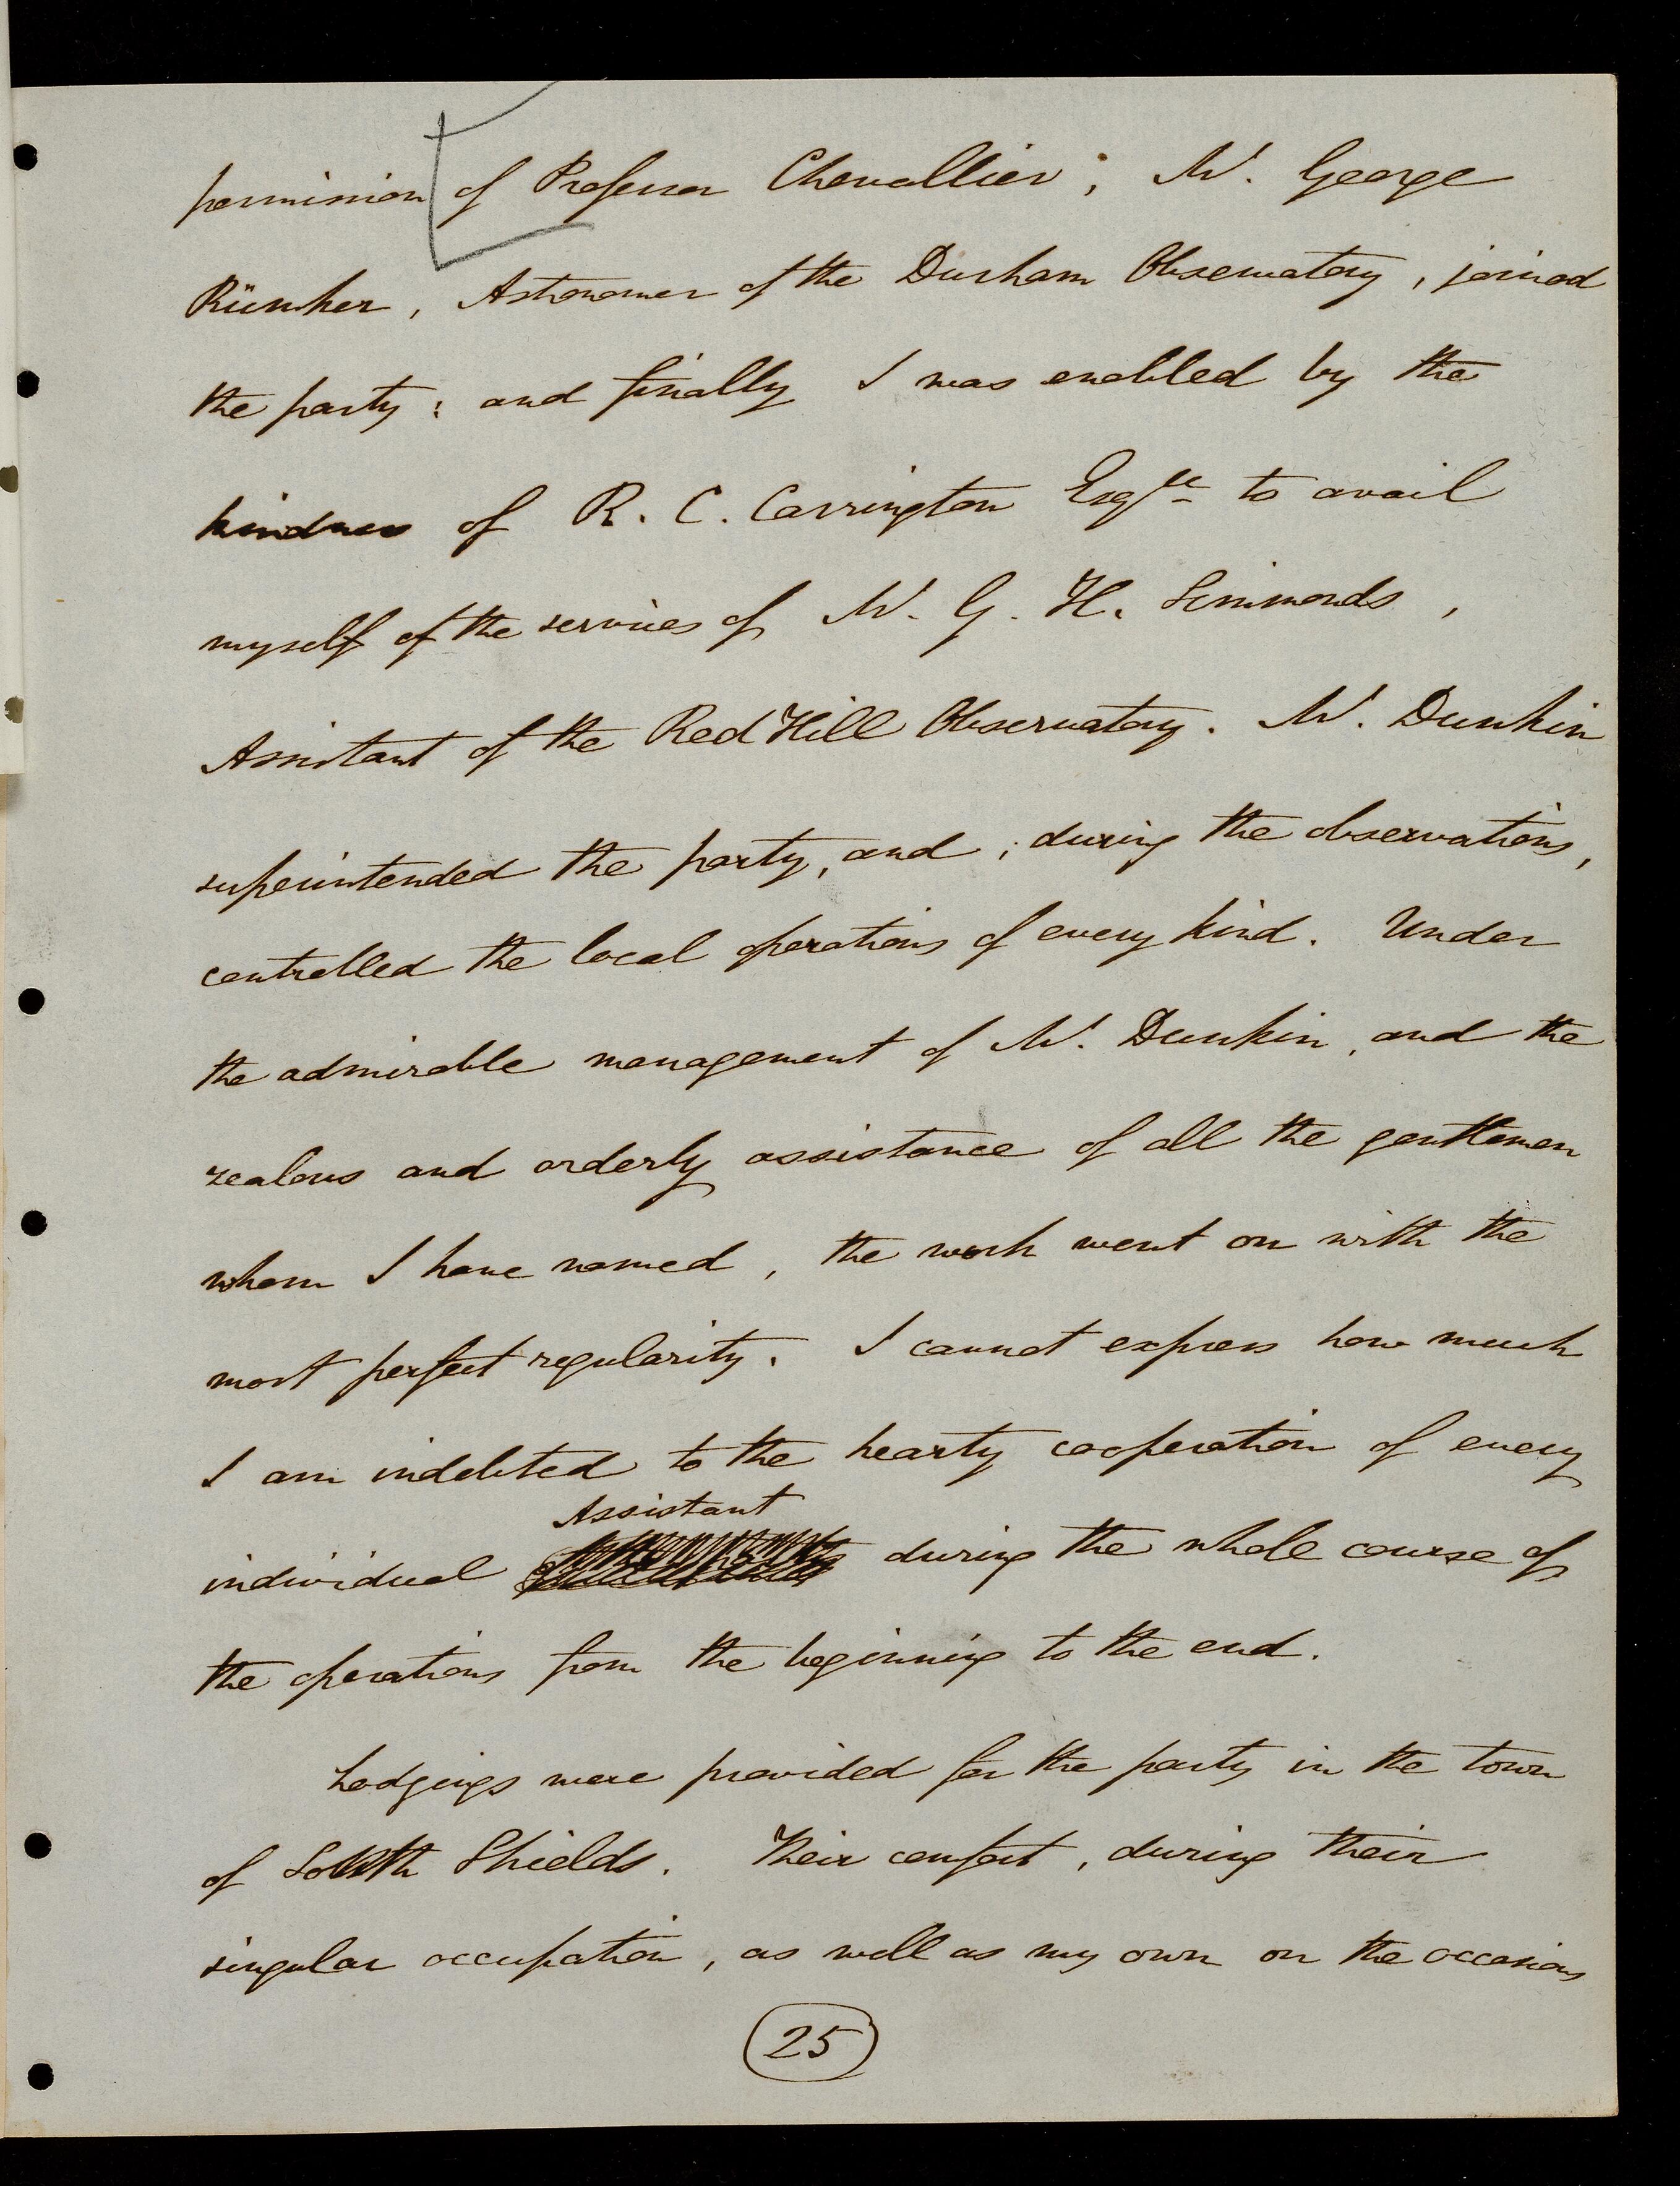 permission of Professor Chevallier, Mr. George
Rümker, Astronomer of the Durham Observatory, joined
the party; and finally I was enabled by the
kindness of R. C. Carrington Esqre to avail
myself of the services of Mr. G. H. Simmonds,
Assistant of the Red Hill Observatory. Mr. Dunkin
superintended the party, and, during the observations,
controlled the local operations of every kind. Under
the admirable management of Mr. Dunkin, and the
zealous and orderly assistance of all the gentlemen
whom I have named, the work went on with the
most perfect regularity. I cannot express how much
I am indebted to the hearty cooperation of every
Assistant
individual during the whole course of
the operations from the beginning to the end.
Lodgings were provided for the party in the town
of South Shields. Their comfort, during their
singular occupation, as well as my own on the occasions
25